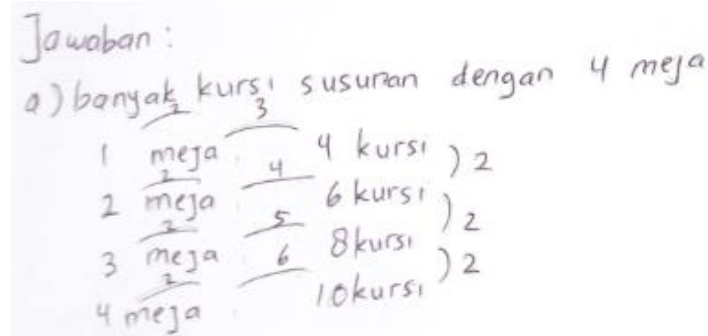 Jawaban :
a) banyak kursi susunan dengan 4 meja
2 3
1 meja 4 kursi ) 2
2 4
2 meja 6 kursi ) 2
2 5
3 meja 8 kursi ) 2
2 6
4 meja 10 kursi